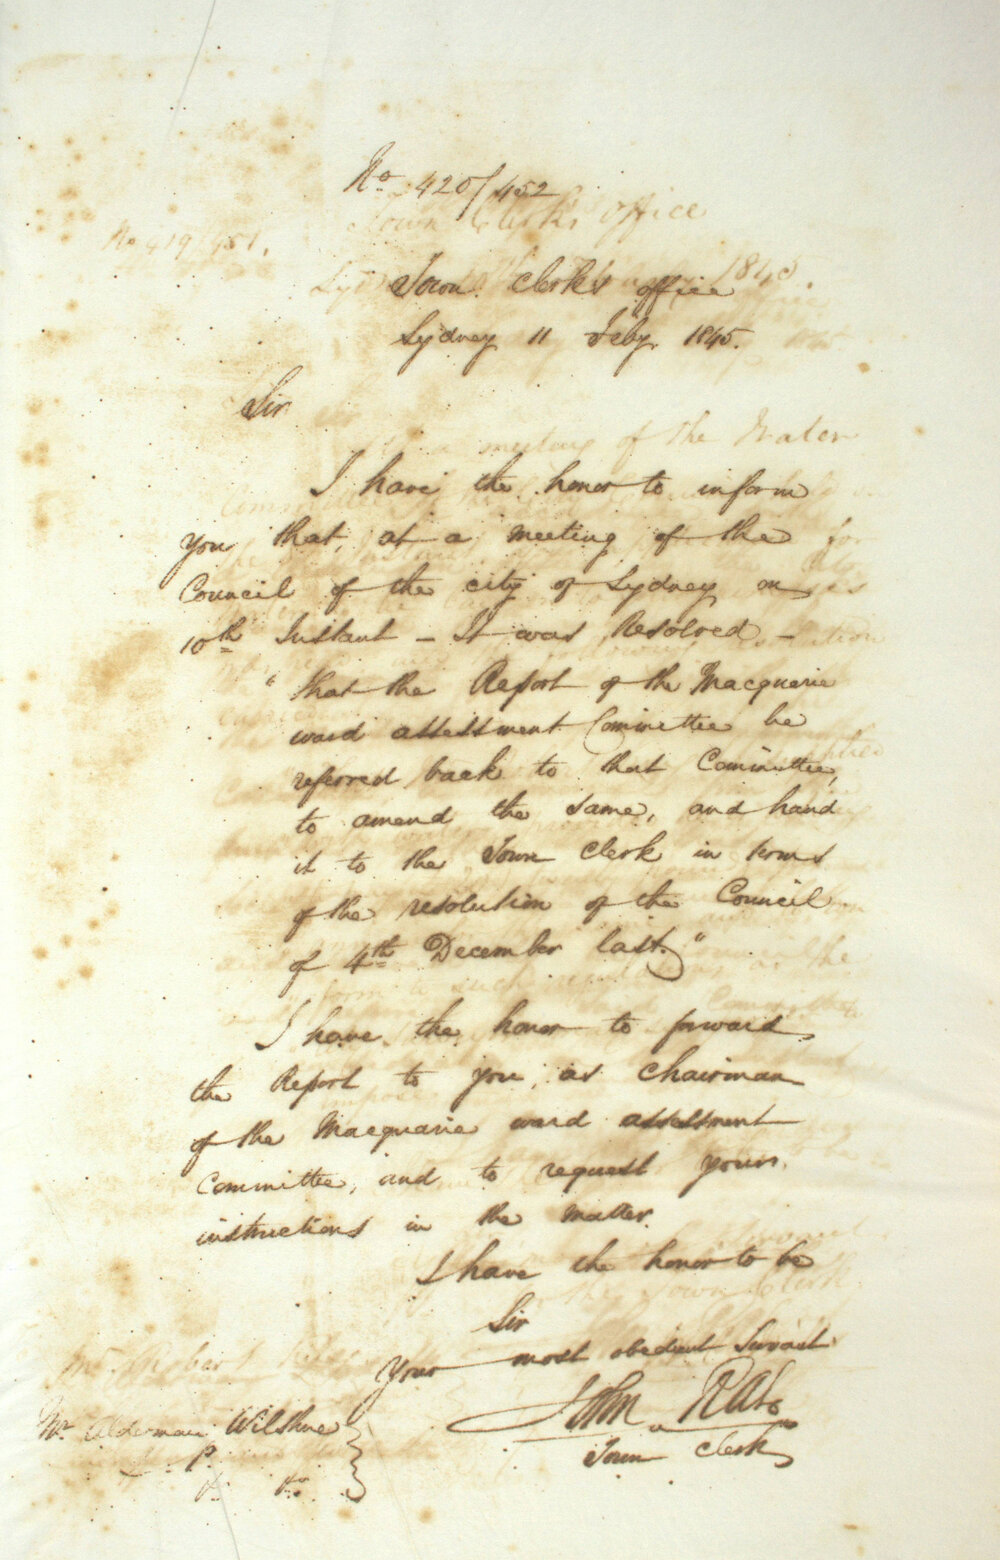 No. 420/452
Town Clerk's Office
No 419/451.
1845.
Town Clerk's office
Sydney 11 Feby. 1845.
Sir
meeting of the Water
I have the honor to inform
you that, at a meeting of the
Council of the city of Sydney on
10th Instant - It was Resolved -
"that the Report of the Macquarie
ward assessment Committee be
referred back to that Committee,
to amend the same, and hand
it to the Town Clerk in terms
of the resolution of the Council
of 4th December last."
I have the honor to forward
the Report to you, as Chairman
of the Macquarie ward assessment
Committee, and to request your
instructions in the matter.
I have the honor to be
Sir
Your most obedient Servant
John Rae
Town Clerk
Mr. Robert
Mr Alderman Wilshire